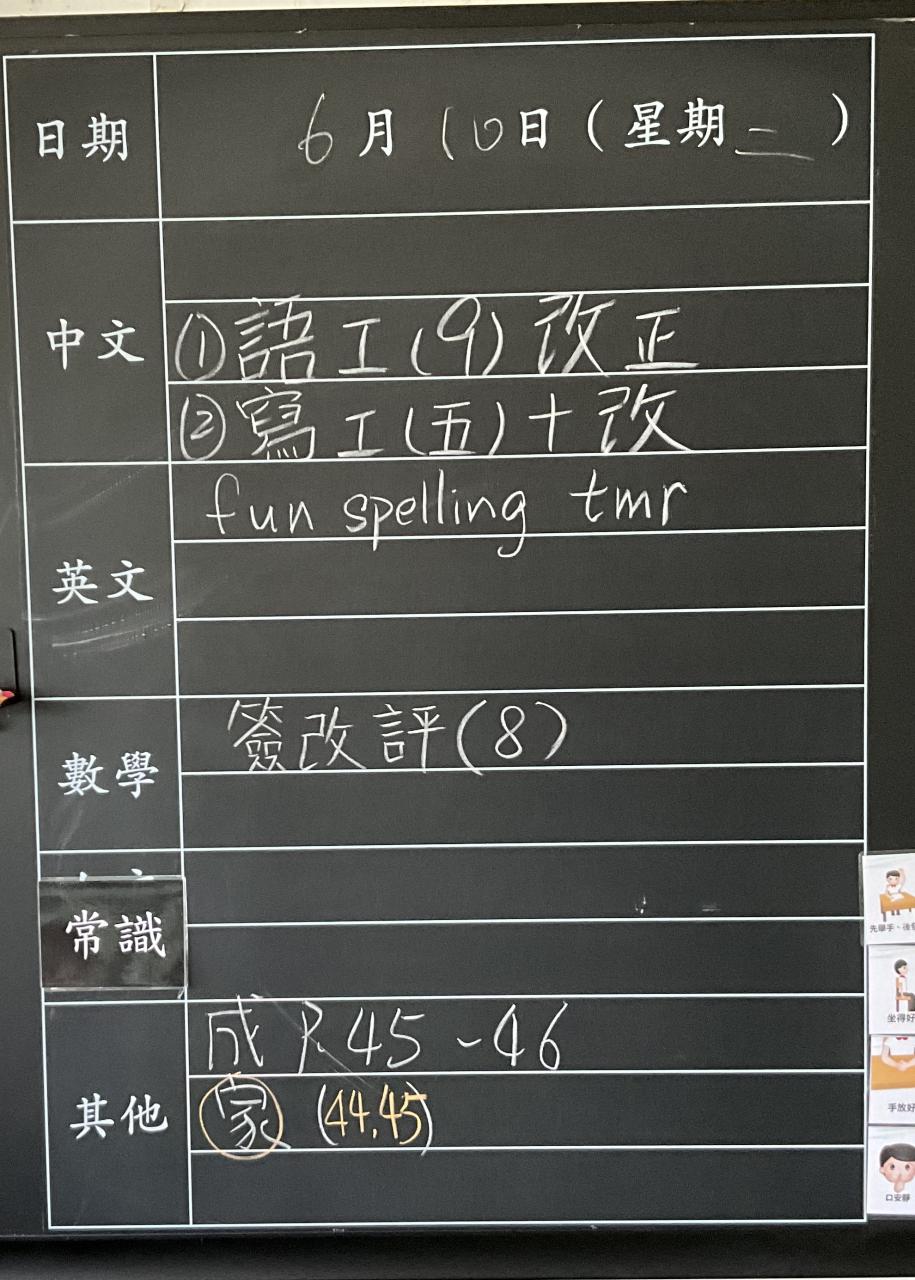 日期
6月10日(星期二)
中文
①語工(9)改正
②寫工(五)+改
英文
fun spelling tmr
數學
簽改評(8)
常識
其他
成 P.45-46
家 (44,45)
先舉手、後
坐得好
手放好
口安靜